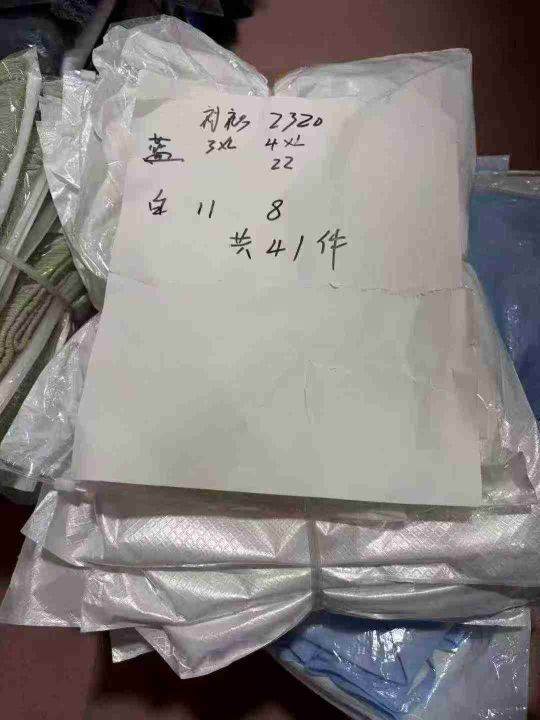 衬衫 2320
蓝 3XL 4XL
22
白 11 8
共41件